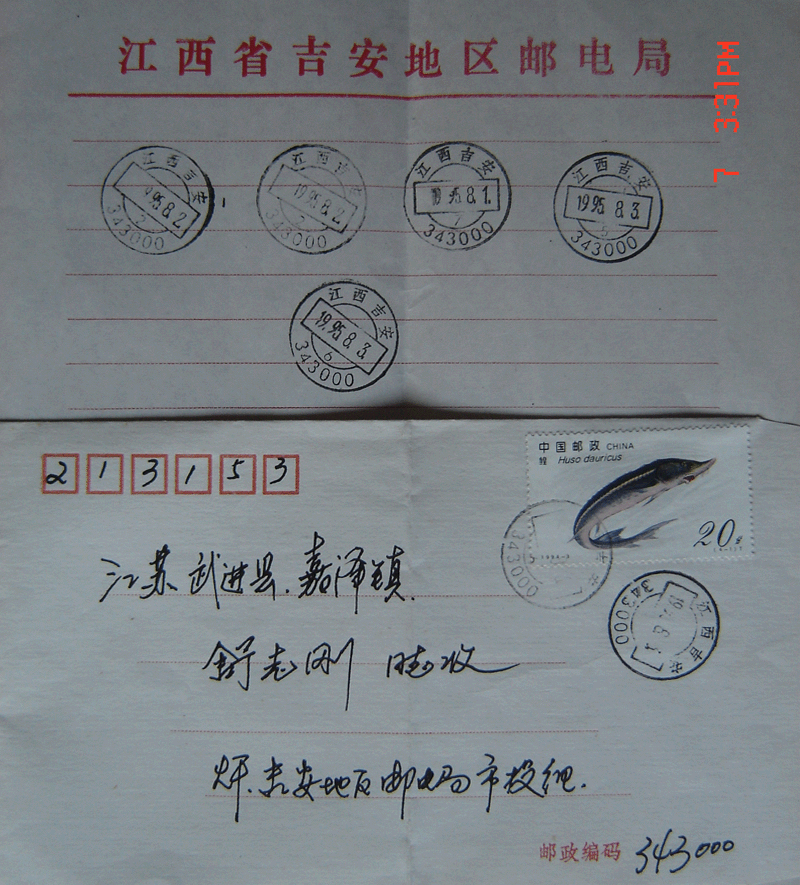 江西省吉安地区邮电局
7 3:31PM
江西吉安
1995.8.2.
2
343000
江西吉安
1995.8.2.
2
343000
江西吉安
1995.8.1.
7
343000
江西吉安
1995.8.3.
5
343000
江西吉安
1995.8.3.
6
343000
中国邮政 CHINA
鳇 Huso dauricus
20分
213153
343000
江西吉安
343000
江苏武进县.嘉泽镇.
舒志刚 同志收
吉安地区邮电局市投组.
邮政编码 343000